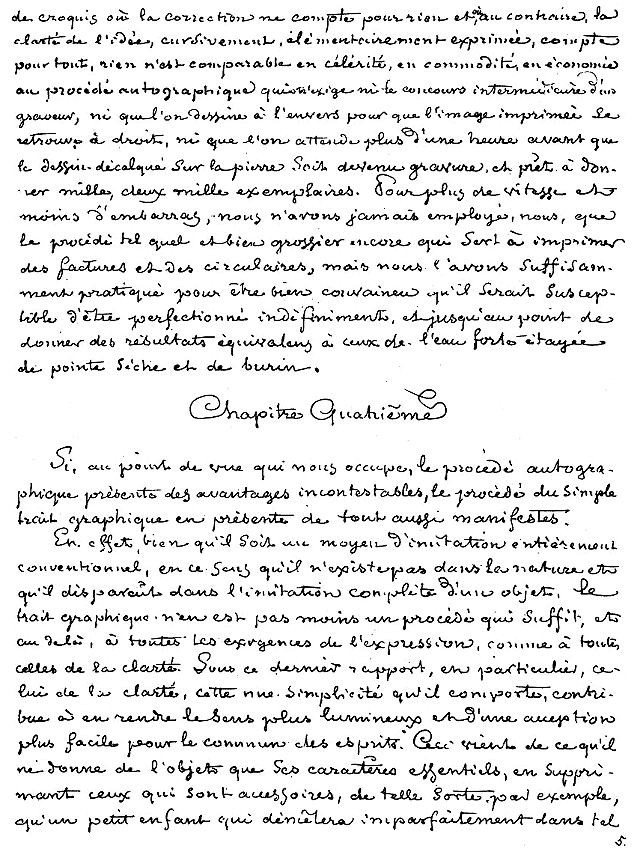 de croquis où la correction ne compte pour rien et où au contraire, la
clarté de l'idée, cursivement, élémentairement exprimée, compte
pour tout, rien n'est comparable en célérité, en commodité, en économie
au procédé autographique qui n'exige ni le concours intermédiaire d'un
graveur, ni que l'on dessine à l'envers pour que l'image imprimée se
retrouve à droit, ni que l'on attende plus d'une heure avant que
le dessin décalqué sur la pierre soit devenu gravure, et prêt à don-
ner mille, deux mille exemplaires. Pour plus de vitesse et
moins d'embarras, nous n'avons jamais employé, nous, que
le procédé tel quel et bien grossier encore qui sert à imprimer
des factures et des circulaires, mais nous l'avons suffisam-
ment pratiqué pour être bien convaincu qu'il serait suscep-
tible d'être perfectionné indéfiniment, et jusqu'au point de
donner des résultats équivalens à ceux de l'eau forte étayée
de pointe sèche et de burin.
Chapitre Quatrième
Si, au point de vue qui nous occupe, le procédé autogra-
phique présente des avantages incontestables, le procédé du simple
trait graphique en présente de tout aussi manifestes.
En effet, bien qu'il soit un moyen d'imitation entièrement
conventionnel, en ce sens qu'il n'existe pas dans la nature et
qu'il disparaît dans l'imitation complète d'un objet, le
trait graphique n'en est pas moins un procédé qui suffit, et
au delà, à toutes les exigences de l'expression, comme à toutes
celles de la clarté. Sous ce dernier rapport, en particulier, ce-
lui de la clarté, cette nue simplicité qu'il comporte, contri-
bue à en rendre le sens plus lumineux et d'une acception
plus facile pour le commun des esprits. Ceci vient de ce qu'il
ne donne de l'objet que ses caractères essentiels, en suppri-
mant ceux qui sont accessoires, de telle sorte, par exemple,
qu'un petit enfant qui démêlera imparfaitement dans tel
5.